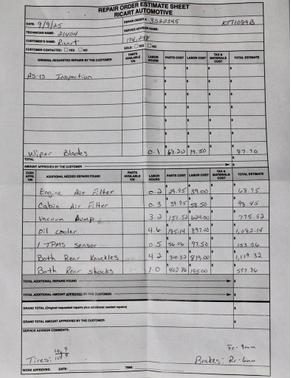 REPAIR ORDER ESTIMATE SHEET
RICART AUTOMOTIVE
DATE: 9/9/25
TECHNICIAN NAME:
SERVICE ADVISOR NAME:
CUSTOMER'S NAME: Ricart
CUSTOMER CONTACTED: YES NO
SOLD: YES NO
GENERAL REQUESTED REPAIRS BY THE CUSTOMER PARTS AVAILABLE Y/N LABOR HOURS PARTS COST LABOR COST TAX & MATERIALS COST TOTAL ESTIMATE
Inspection
Wiper Blades 0.1 19.50 87.70
TOTAL
AMOUNT APPROVED BY THE CUSTOMER
ADDITIONAL NEEDED REPAIRS FOUND PARTS AVAILABLE Y/N LABOR HOURS PARTS COST LABOR COST TAX & MATERIALS COST TOTAL ESTIMATE
Engine Air Filter 0.2 29.95 39.00 68.95
Cabin Air Filter 0.3 39.95 58.50 98.45
Vacuum Pump 3.2 151.52 624.00 775.52
Oil cooler 4.6 897.00
1 TPMS sensor 0.5 97.50
Both Rear Knuckles 4.2 300.32 819.00 1,119.32
Both Rear shocks 1.0 195.00
TOTAL ADDITIONAL REPAIRS FOUND
TOTAL ADDITIONAL AMOUNT APPROVED BY THE CUSTOMER
GRAND TOTAL (Original requested repairs plus additional needed repairs)
GRAND TOTAL AMOUNT APPROVED BY THE CUSTOMER
SERVICE ADVISOR COMMENTS:
Fr- 9mm
Tires:
Brakes: Rr- 6mm
WORK APPROVED: DATE: TIME: